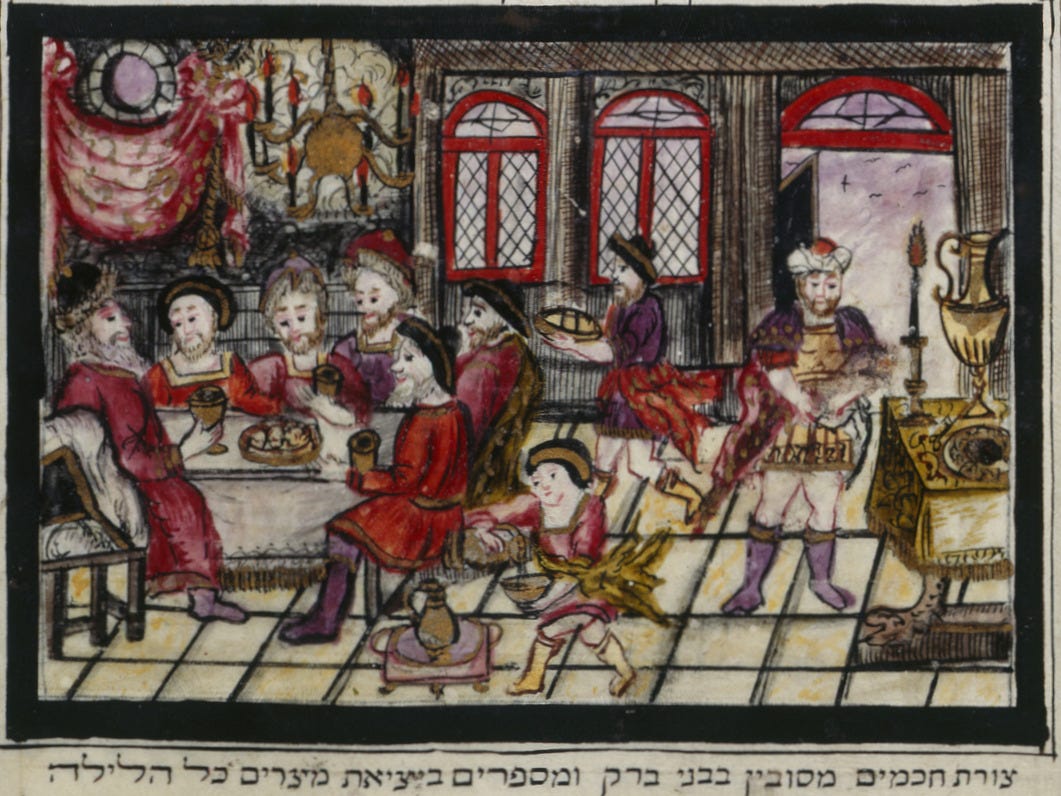 צורת חכמים מסובין בבני ברק ומספרים ביציאת מצרים כל הלילה: